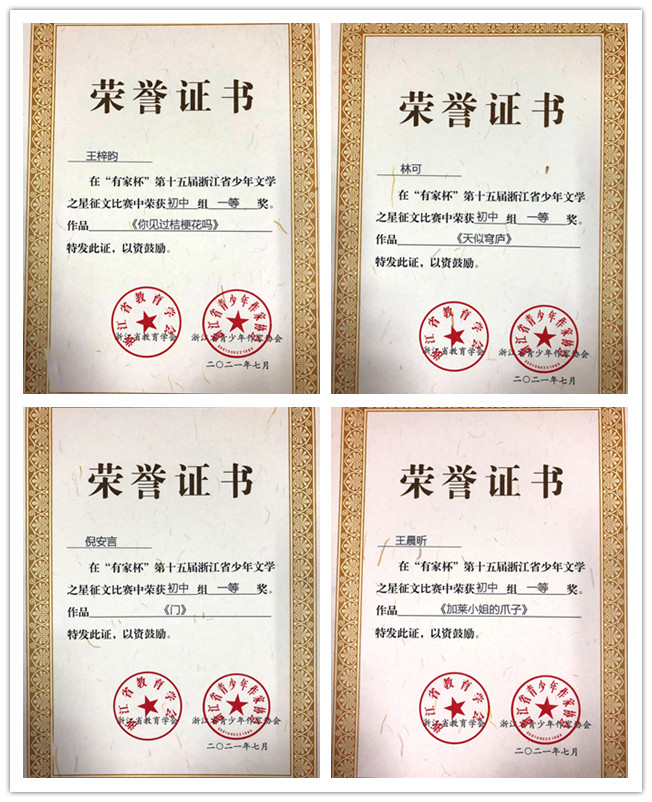 荣誉证书
王梓昀
在“有家杯”第十五届浙江省少年文学
之星征文比赛中荣获初中 组 一等 奖。
作品 《你见过桔梗花吗》
特发此证，以资鼓励。
浙江省教育学会
浙江省青少年作家协会
浙江省教育学会 浙江省青少年作家协会
二〇二一年七月
荣誉证书
林可
在“有家杯”第十五届浙江省少年文学
之星征文比赛中荣获初中 组 一等 奖。
作品 《天似穹庐》
特发此证，以资鼓励。
浙江省教育学会
浙江省青少年作家协会
浙江省教育学会 浙江省青少年作家协会
二〇二一年七月
荣誉证书
倪安言
在“有家杯”第十五届浙江省少年文学
之星征文比赛中荣获初中 组 一等 奖。
作品 《门》
特发此证，以资鼓励。
浙江省教育学会
浙江省青少年作家协会
浙江省教育学会 浙江省青少年作家协会
二〇二一年七月
荣誉证书
王晨昕
在“有家杯”第十五届浙江省少年文学
之星征文比赛中荣获初中 组 一等 奖。
作品 《加莱小姐的爪子》
特发此证，以资鼓励。
浙江省教育学会
浙江省青少年作家协会
浙江省教育学会 浙江省青少年作家协会
二〇二一年七月